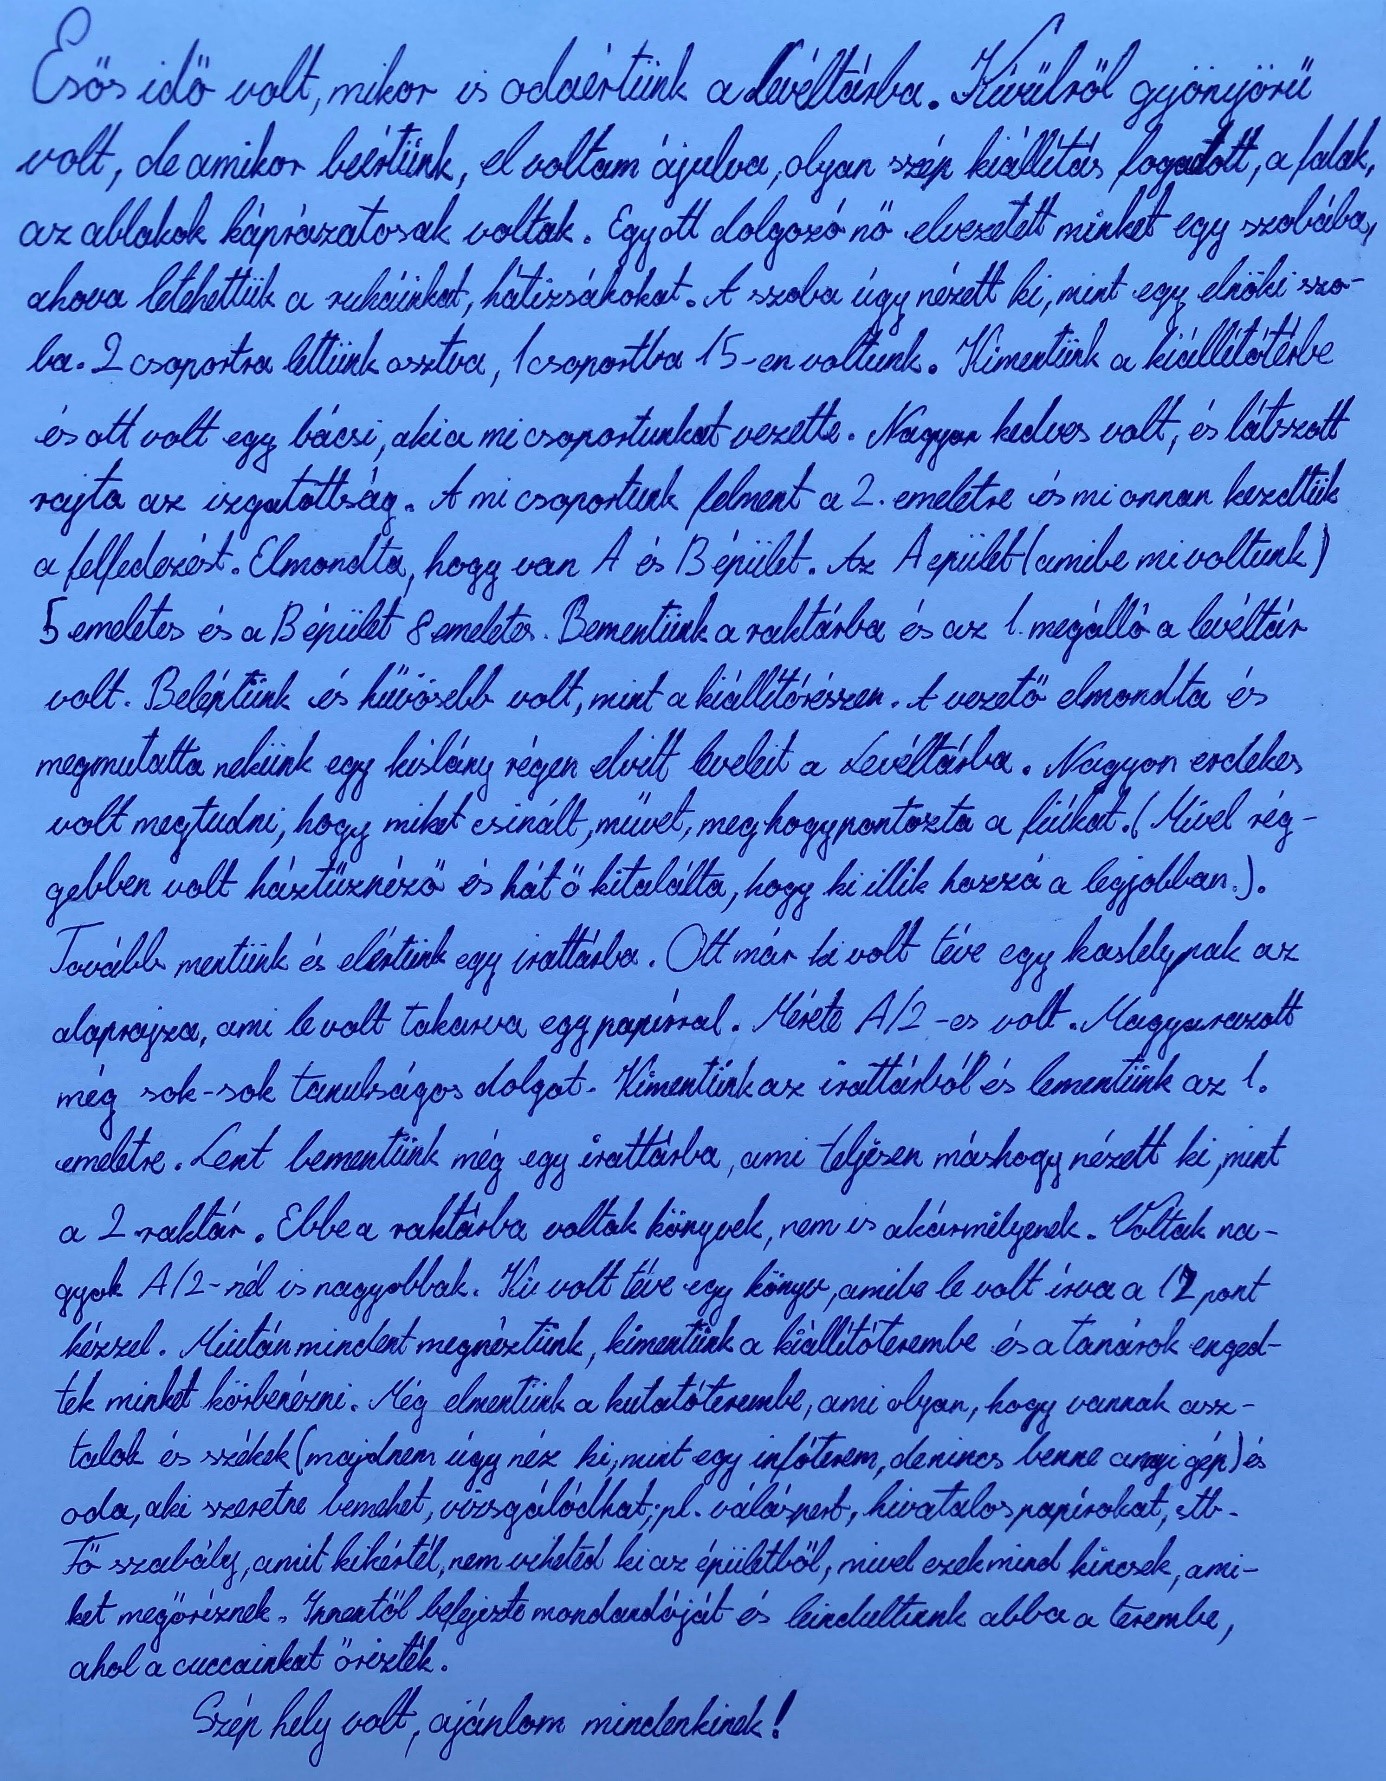 Esős idő volt, mikor is odaértünk a Levéltárba. Kívülről gyönyörű
volt, de amikor beértünk, el voltam ájulva, olyan szép kiállítás fogadott, a falak,
az ablakok káprázatosak voltak. Egy ott dolgozó nő elvezetett minket egy szobába,
ahova letehettük a ruháinkat, hátizsákokat. A szoba úgy nézett ki, mint egy elnöki szo-
ba. 2 csoportra lettünk osztva, 1 csoportba 15-en voltunk. Kimentünk a kiállítótérbe
és ott volt egy bácsi, aki a mi csoportunkat vezette. Nagyon kedves volt, és látszott
rajta az izgatottság. A mi csoportunk felment a 2. emeletre és mi onnan kezdtük
a felfedezést. Elmondta, hogy van A és B épület. Az A épület (amibe mi voltunk)
5 emeletes és a B épület 8 emeletes. Bementünk a raktárba és az 1. megálló a levéltár
volt. Beléptünk és hűvösebb volt, mint a kiállítórészen. A vezető elmondta és
megmutatta nekünk egy kislány régen elvitt leveleit a Levéltárba. Nagyon érdekes
volt megtudni, hogy miket csinált, művet, meg hogy pontozta a fiúkat. (Mivel rég-
gebben volt háztűznéző és hát ő kitalálta, hogy ki illik hozzá a legjobban.).
Tovább mentünk és elértünk egy irattárba. Ott már ki volt téve egy kastélynak az
alaprajza, ami le volt takarva egy papírral. Mérete A/2-es volt. Magyarázott
még sok-sok tanulságos dolgot. Kimentünk az irattárból és lementünk az 1.
emeletre. Lent bementünk még egy irattárba, ami teljesen máshogy nézett ki, mint
a 2 raktár. Ebbe a raktárba voltak könyvek, nem is akármilyenek. Voltak na-
gyok A/2-nél is nagyobbak. Ki volt téve egy könyv, amibe le volt írva a 12 pont
kézzel. Miután mindent megnéztünk, kimentünk a kiállítóterembe és a tanárok enged-
tek minket körbenézni. Még elmentünk a kutatóterembe, ami olyan, hogy vannak asz-
talok és székek (majdnem úgy néz ki, mint egy infóterem, de nincs benne annyi gép) és
oda, aki szeretne bemehet, vizsgálódhat; pl. válóspert, hivatalos papírokat, stb.
Fő szabály, amit kikértél, nem viheted ki az épületből, mivel ezek mind kincsek, ami-
ket megőriznek. Innentől befejezte mondandóját és leindultunk abba a terembe,
ahol a cuccainkat őrizték.
Szép hely volt, ajánlom mindenkinek!